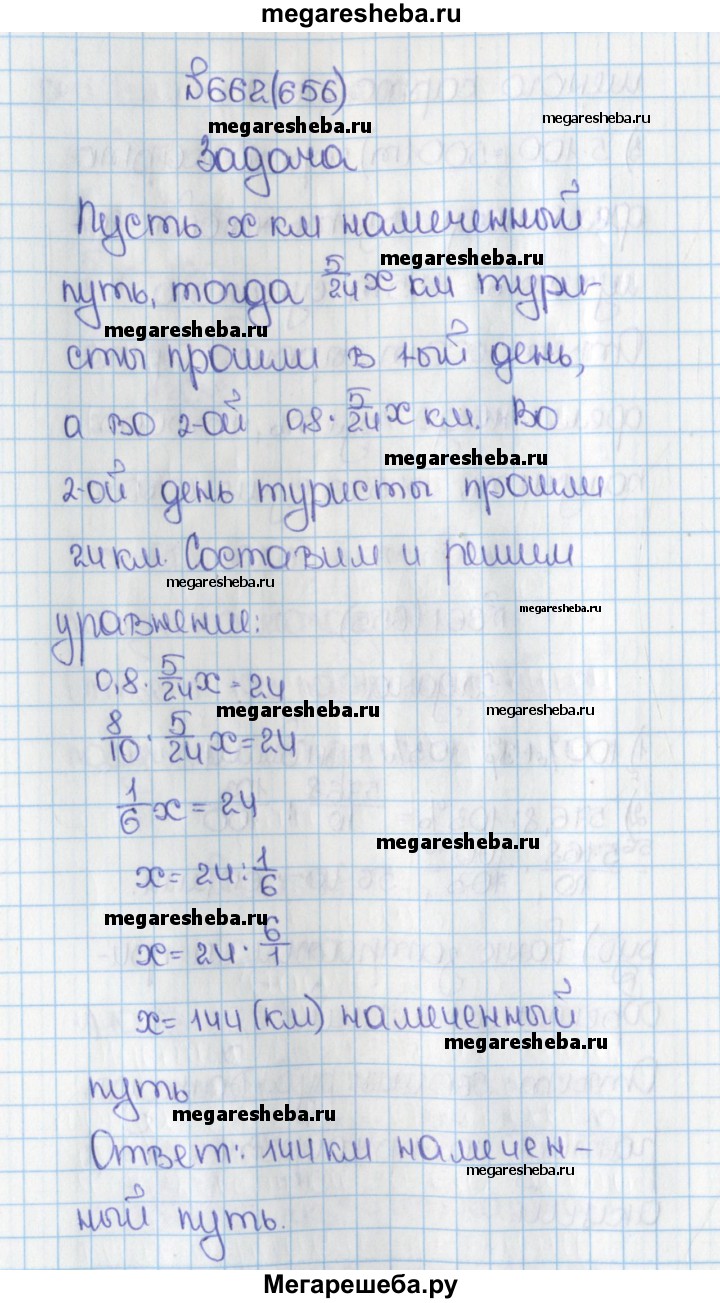 megaresheba.ru
№662(656)
megaresheba.ru
megaresheba.ru
Задача
Пусть x км намеченный
megaresheba.ru
путь, тогда 5/24 x км тури-
megaresheba.ru
сты прошли в 1-ый день,
а во 2-ой 0,8 · 5/24 x км. Во
megaresheba.ru
2-ой день туристы прошли
24 км. Составим и решим
megaresheba.ru
megaresheba.ru
уравнение:
0,8 · 5/24 x = 24
megaresheba.ru
megaresheba.ru
8/10 · 5/24 x = 24
1/6 x = 24
megaresheba.ru
x = 24 : 1/6
megaresheba.ru
x = 24 · 6/1
x = 144 (км) намеченный
megaresheba.ru
путь
megaresheba.ru
Ответ: 144 км намечен-
megaresheba.ru
ный путь.
Мегарешеба.ру